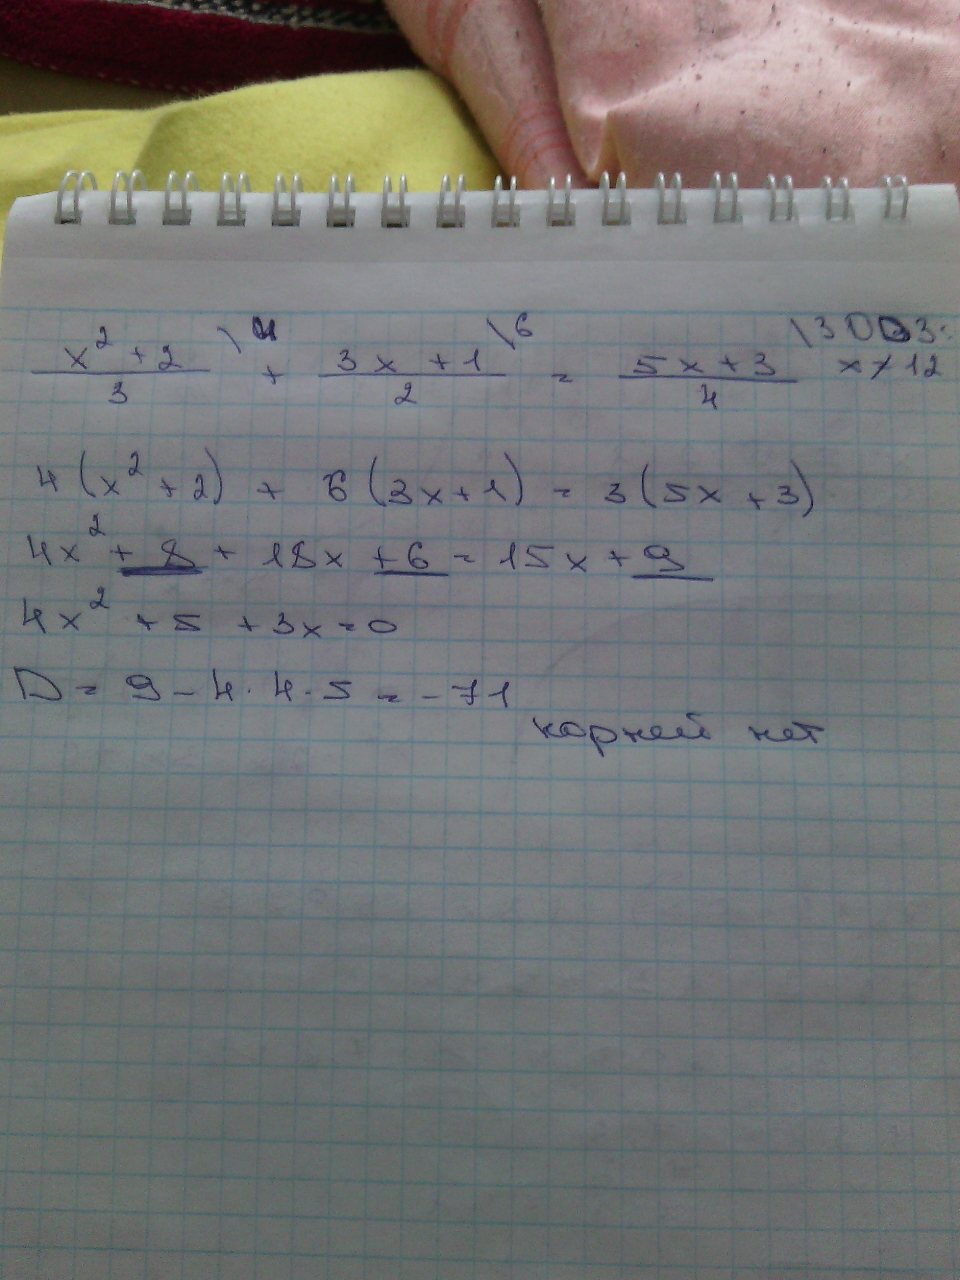 x² + 2 \4 / 3 + 3x + 1 \6 / 2 = 5x + 3 \3 / 4 ОДЗ: x ≠ 12
4(x² + 2) + 6(3x + 1) = 3(5x + 3)
4x² + 8 + 18x + 6 = 15x + 9
4x² + 5 + 3x = 0
D = 9 - 4 · 4 · 5 = -71
корней нет